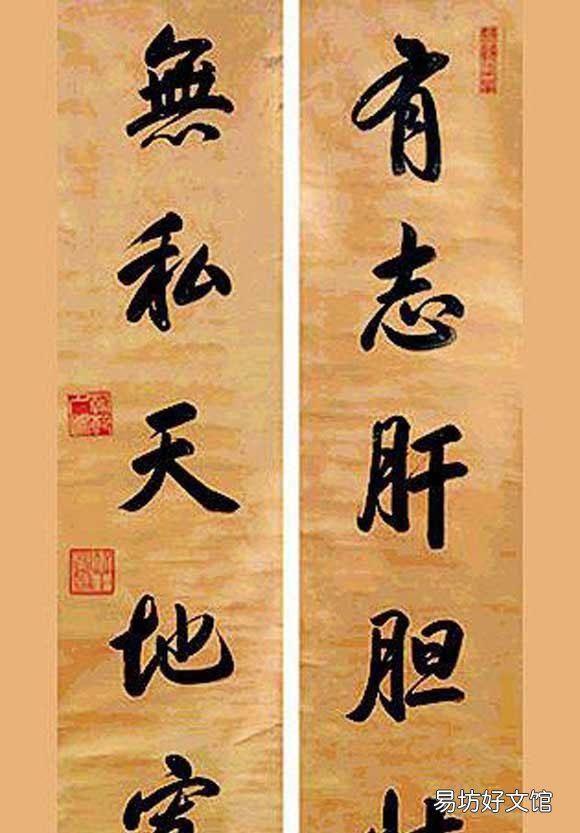 有志肝胆
無私天地
易坊好文馆